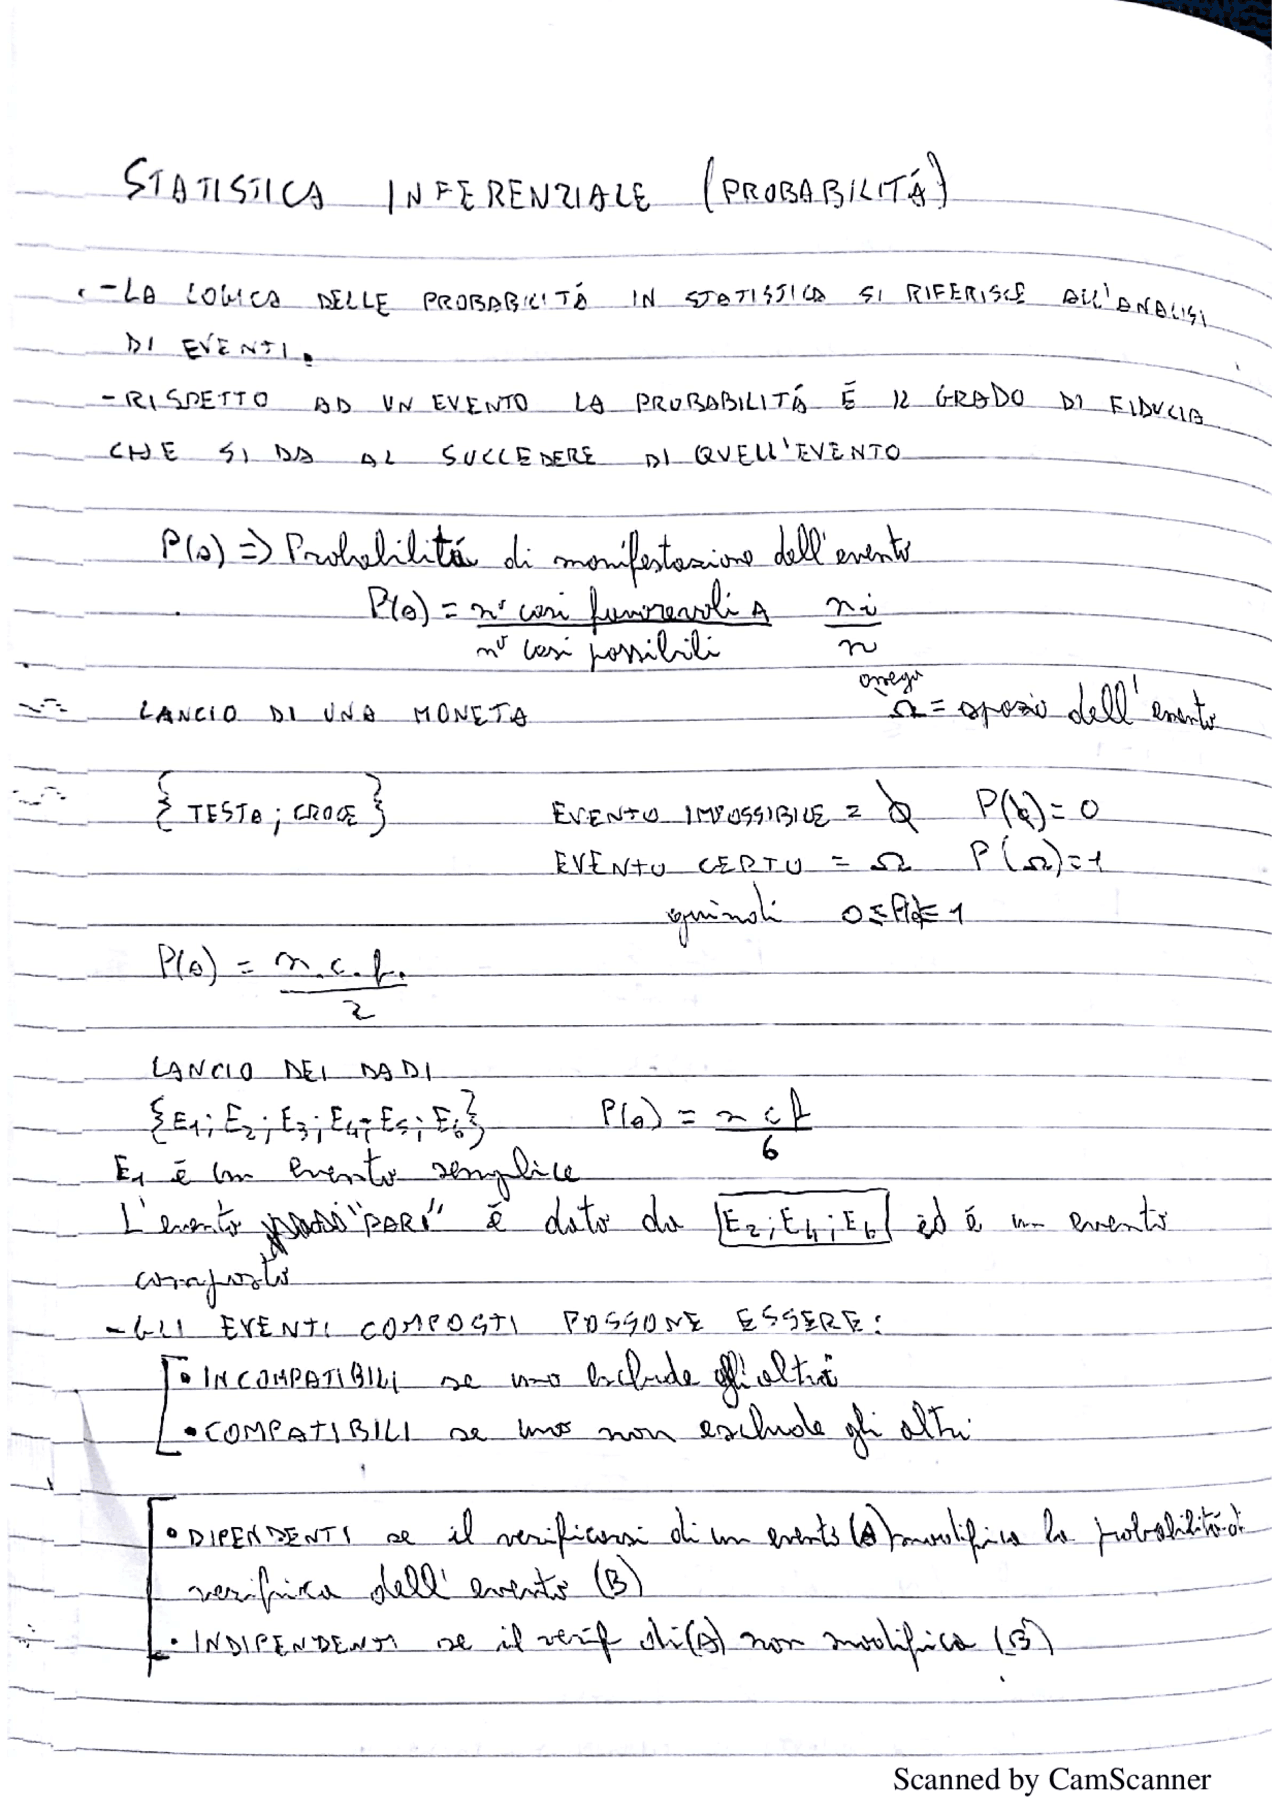 STATISTICA INFERENZIALE (PROBABILITÁ)
- LA LOGICA DELLE PROBABILITÁ IN STATISTICA SI RIFERISCE ALL'ANALISI
DI EVENTI.
- RISPETTO AD UN EVENTO LA PROBABILITÁ É IL GRADO DI FIDUCIA
CHE SI DA AL SUCCEDERE DI QUELL'EVENTO
P(A) => Probabilitá di manifestazione dell'evento
P(A) = n° casi favorevoli A / n° casi possibili   ni / n
omega
LANCIO DI UNA MONETA   Ω = spazio dell'evento
{TESTA; CROCE}   EVENTO IMPOSSIBILE = ∅   P(∅) = 0
EVENTO CERTO = Ω   P(Ω) = 1
quindi 0 ≤ P(A) ≤ 1
P(A) = n.c.f. / 2
LANCIO DEI DADI
{E1; E2; E3; E4; E5; E6}   P(A) = n c f / 6
E1 é un evento semplice
L'evento "PARI" é dato da [E2; E4; E6] ed é un evento
composto
- GLI EVENTI COMPOSTI POSSONE ESSERE:
• INCOMPATIBILI se uno esclude gli altri
• COMPATIBILI se uno non esclude gli altri
• DIPENDENTI se il verificarsi di un evento (A) modifica la probabilitá di
verifica dell'evento (B)
• INDIPENDENTI se il verif di (A) non modifica (B)
Scanned by CamScanner